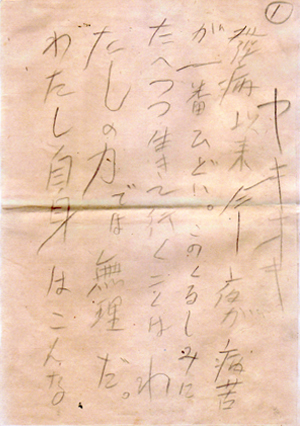 ①
発病以来今夜が病苦
が一番ひどい。このくるしみに
たへつつ生きて行くことはわ
たしの力では無理だ。
わたし自身はこんな